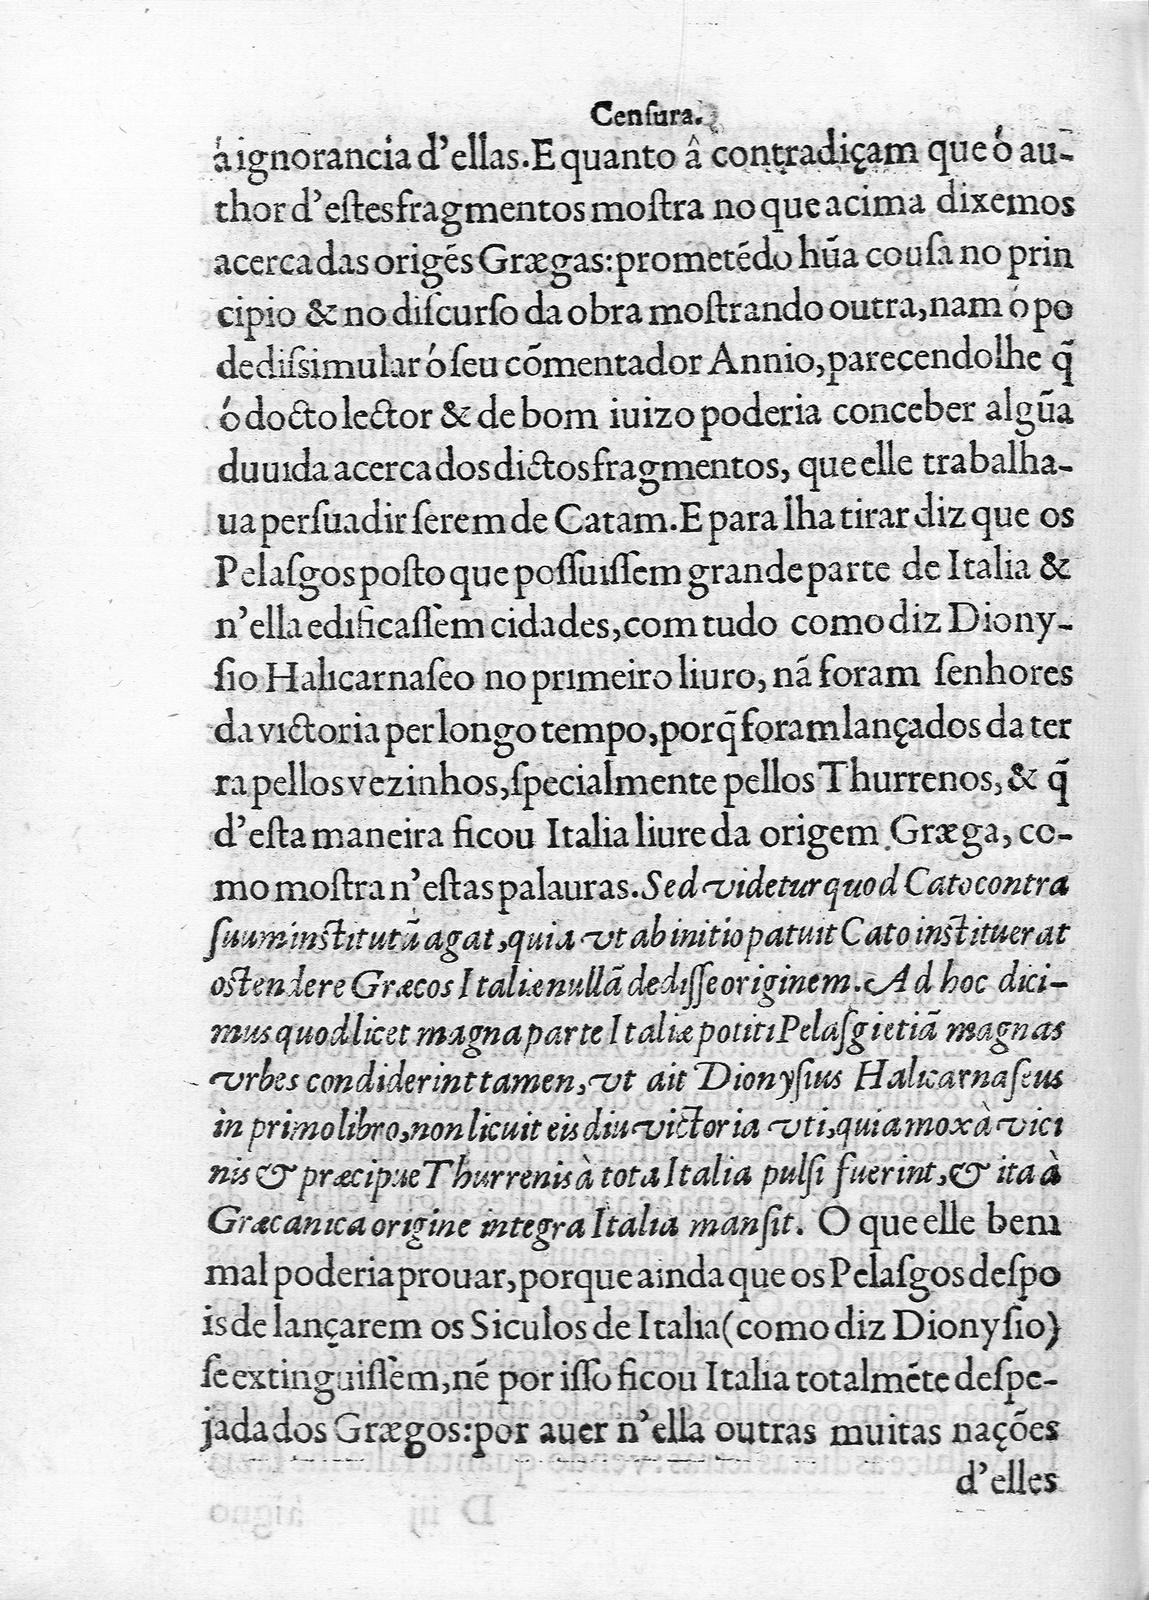 Cenſura.
á ignorancia d'ellas. E quanto â contradiçam que ó au-
thor d'eſtes fragmentos moſtra no que acima dixemos
acerca das origẽs Græegas: prometẽdo hũa couſa no prin
cipio & no diſcurſo da obra moſtrando outra, nam ó po
de diſsimular ó ſeu cõmentador Annio, parecendolhe q̃
ó docto lector & de bom iuizo poderia conceber algũa
duuida acerca dos dictos fragmentos, que elle trabalha-
ua perſuadir ſerem de Catam. E para lha tirar diz que os
Pelaſgos poſto que poſſuiſſem grande parte de Italia &
n'ella edificaſſem cidades, com tudo como diz Diony-
ſio Halicarnaſeo no primeiro liuro, nã foram ſenhores
da victoria per longo tempo, porq̃ foram lançados da ter
ra pellos vezinhos, ſpecialmente pellos Thurrenos, & q̃
d'eſta maneira ficou Italia liure da origem Græga, co-
mo moſtra n'eſtas palauras. Sed videtur quod Cato contra
ſuum inſtitutũ agat, quia vt ab initio patuit Cato inſtituerat
oſtendere Græcos Italiæ nullã dediſſe originem. Ad hoc dici-
mus quod licet magna parte Italiæ potiti Pelaſgi etiã magnas
vrbes condiderint tamen, vt ait Dionyſius Halicarnaſeus
in primo libro, non licuit eis diu victoria vti, quia mox à vici
nis & præcipue Thurrenis à tota Italia pulſi fuerint, & ita à
Græcanica origine integra Italia manſit. O que elle bem
mal poderia prouar, porque ainda que os Pelaſgos deſpo
is de lançarem os Siculos de Italia (como diz Dionyſio)
ſe extinguiſſem, nẽ por iſſo ficou Italia totalmẽte deſpe-
jada dos Grægos: por auer n'ella outras muitas nações
d'elles